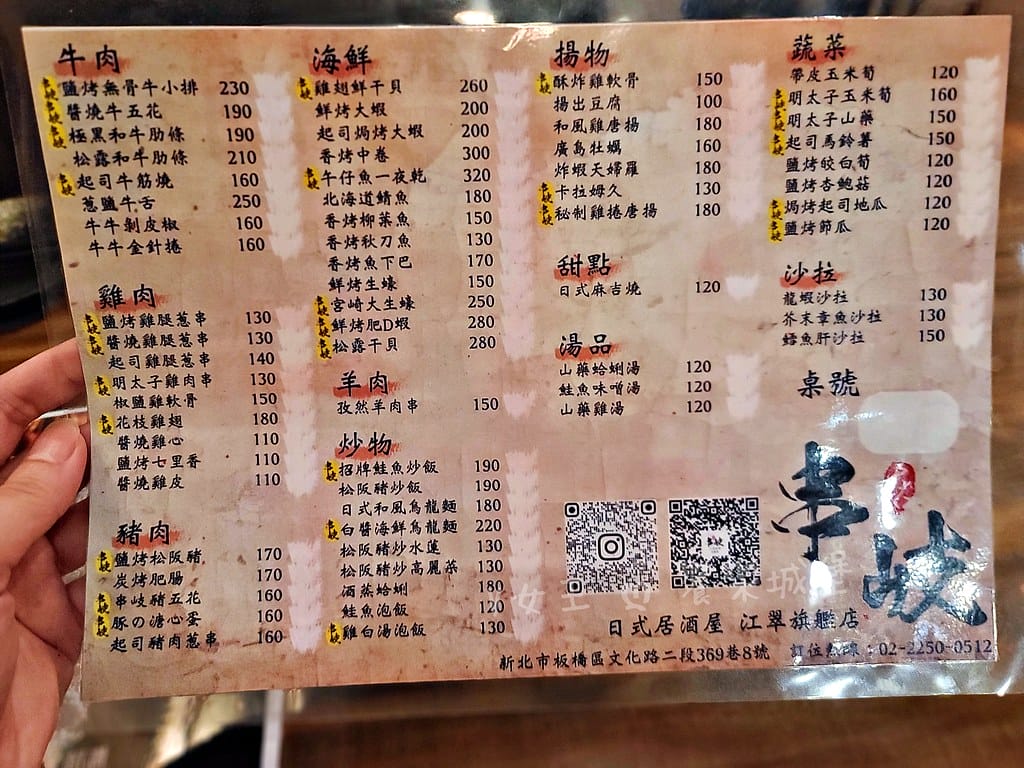 牛肉
串岐 鹽烤無骨牛小排 230
串岐 醬燒牛五花 190
串岐 極黑和牛肋條 190
松露和牛肋條 210
串岐 起司牛筋燒 160
蔥鹽牛舌 250
牛牛剝皮椒 160
牛牛金針捲 160
雞肉
串岐 鹽烤雞腿蔥串 130
串岐 醬燒雞腿蔥串 130
起司雞腿蔥串 140
串岐 明太子雞肉串 130
椒鹽雞軟骨 150
串岐 花枝雞翅 180
醬燒雞心 110
鹽烤七里香 110
醬燒雞皮 110
豬肉
串岐 鹽烤松阪豬 170
炭烤肥腸 170
串岐 串岐豬五花 160
串岐 豚の溏心蛋 160
起司豬肉蔥串 160
海鮮
串岐 雞翅鮮干貝 260
鮮烤大蝦 200
起司焗烤大蝦 200
香烤中卷 300
串岐 午仔魚一夜乾 320
北海道鯖魚 180
香烤柳葉魚 150
香烤秋刀魚 130
香烤魚下巴 170
鮮烤生蠔 150
串岐 宮崎大生蠔 250
串岐 鮮烤肥D蝦 280
串岐 松露干貝 280
羊肉
孜然羊肉串 150
炒物
串岐 招牌鮭魚炒飯 190
松阪豬炒飯 190
日式和風烏龍麵 180
串岐 白醬海鮮烏龍麵 220
松阪豬炒水蓮 130
松阪豬炒高麗菜 130
酒蒸蛤蜊 180
鮭魚泡飯 120
串岐 雞白湯泡飯 130
揚物
串岐 酥炸雞軟骨 150
揚出豆腐 100
和風雞唐揚 180
廣島牡蠣 160
炸蝦天婦羅 180
串岐 卡拉姆久 130
串岐 秘制雞捲唐揚 180
甜點
日式麻吉燒 120
湯品
山藥蛤蜊湯 120
鮭魚味噌湯 120
山藥雞湯 120
蔬菜
帶皮玉米筍 120
串岐 明太子玉米筍 160
串岐 明太子山藥 150
串岐 起司馬鈴薯 150
鹽烤皎白筍 120
鹽烤杏鮑菇 120
串岐 焗烤起司地瓜 120
串岐 鹽烤節瓜 120
沙拉
龍蝦沙拉 130
芥末章魚沙拉 130
鱈魚肝沙拉 150
桌號
串岐
日式居酒屋 江翠旗艦店
新北市板橋區文化路二段369巷8號 訂位熱線：02-2250-0512